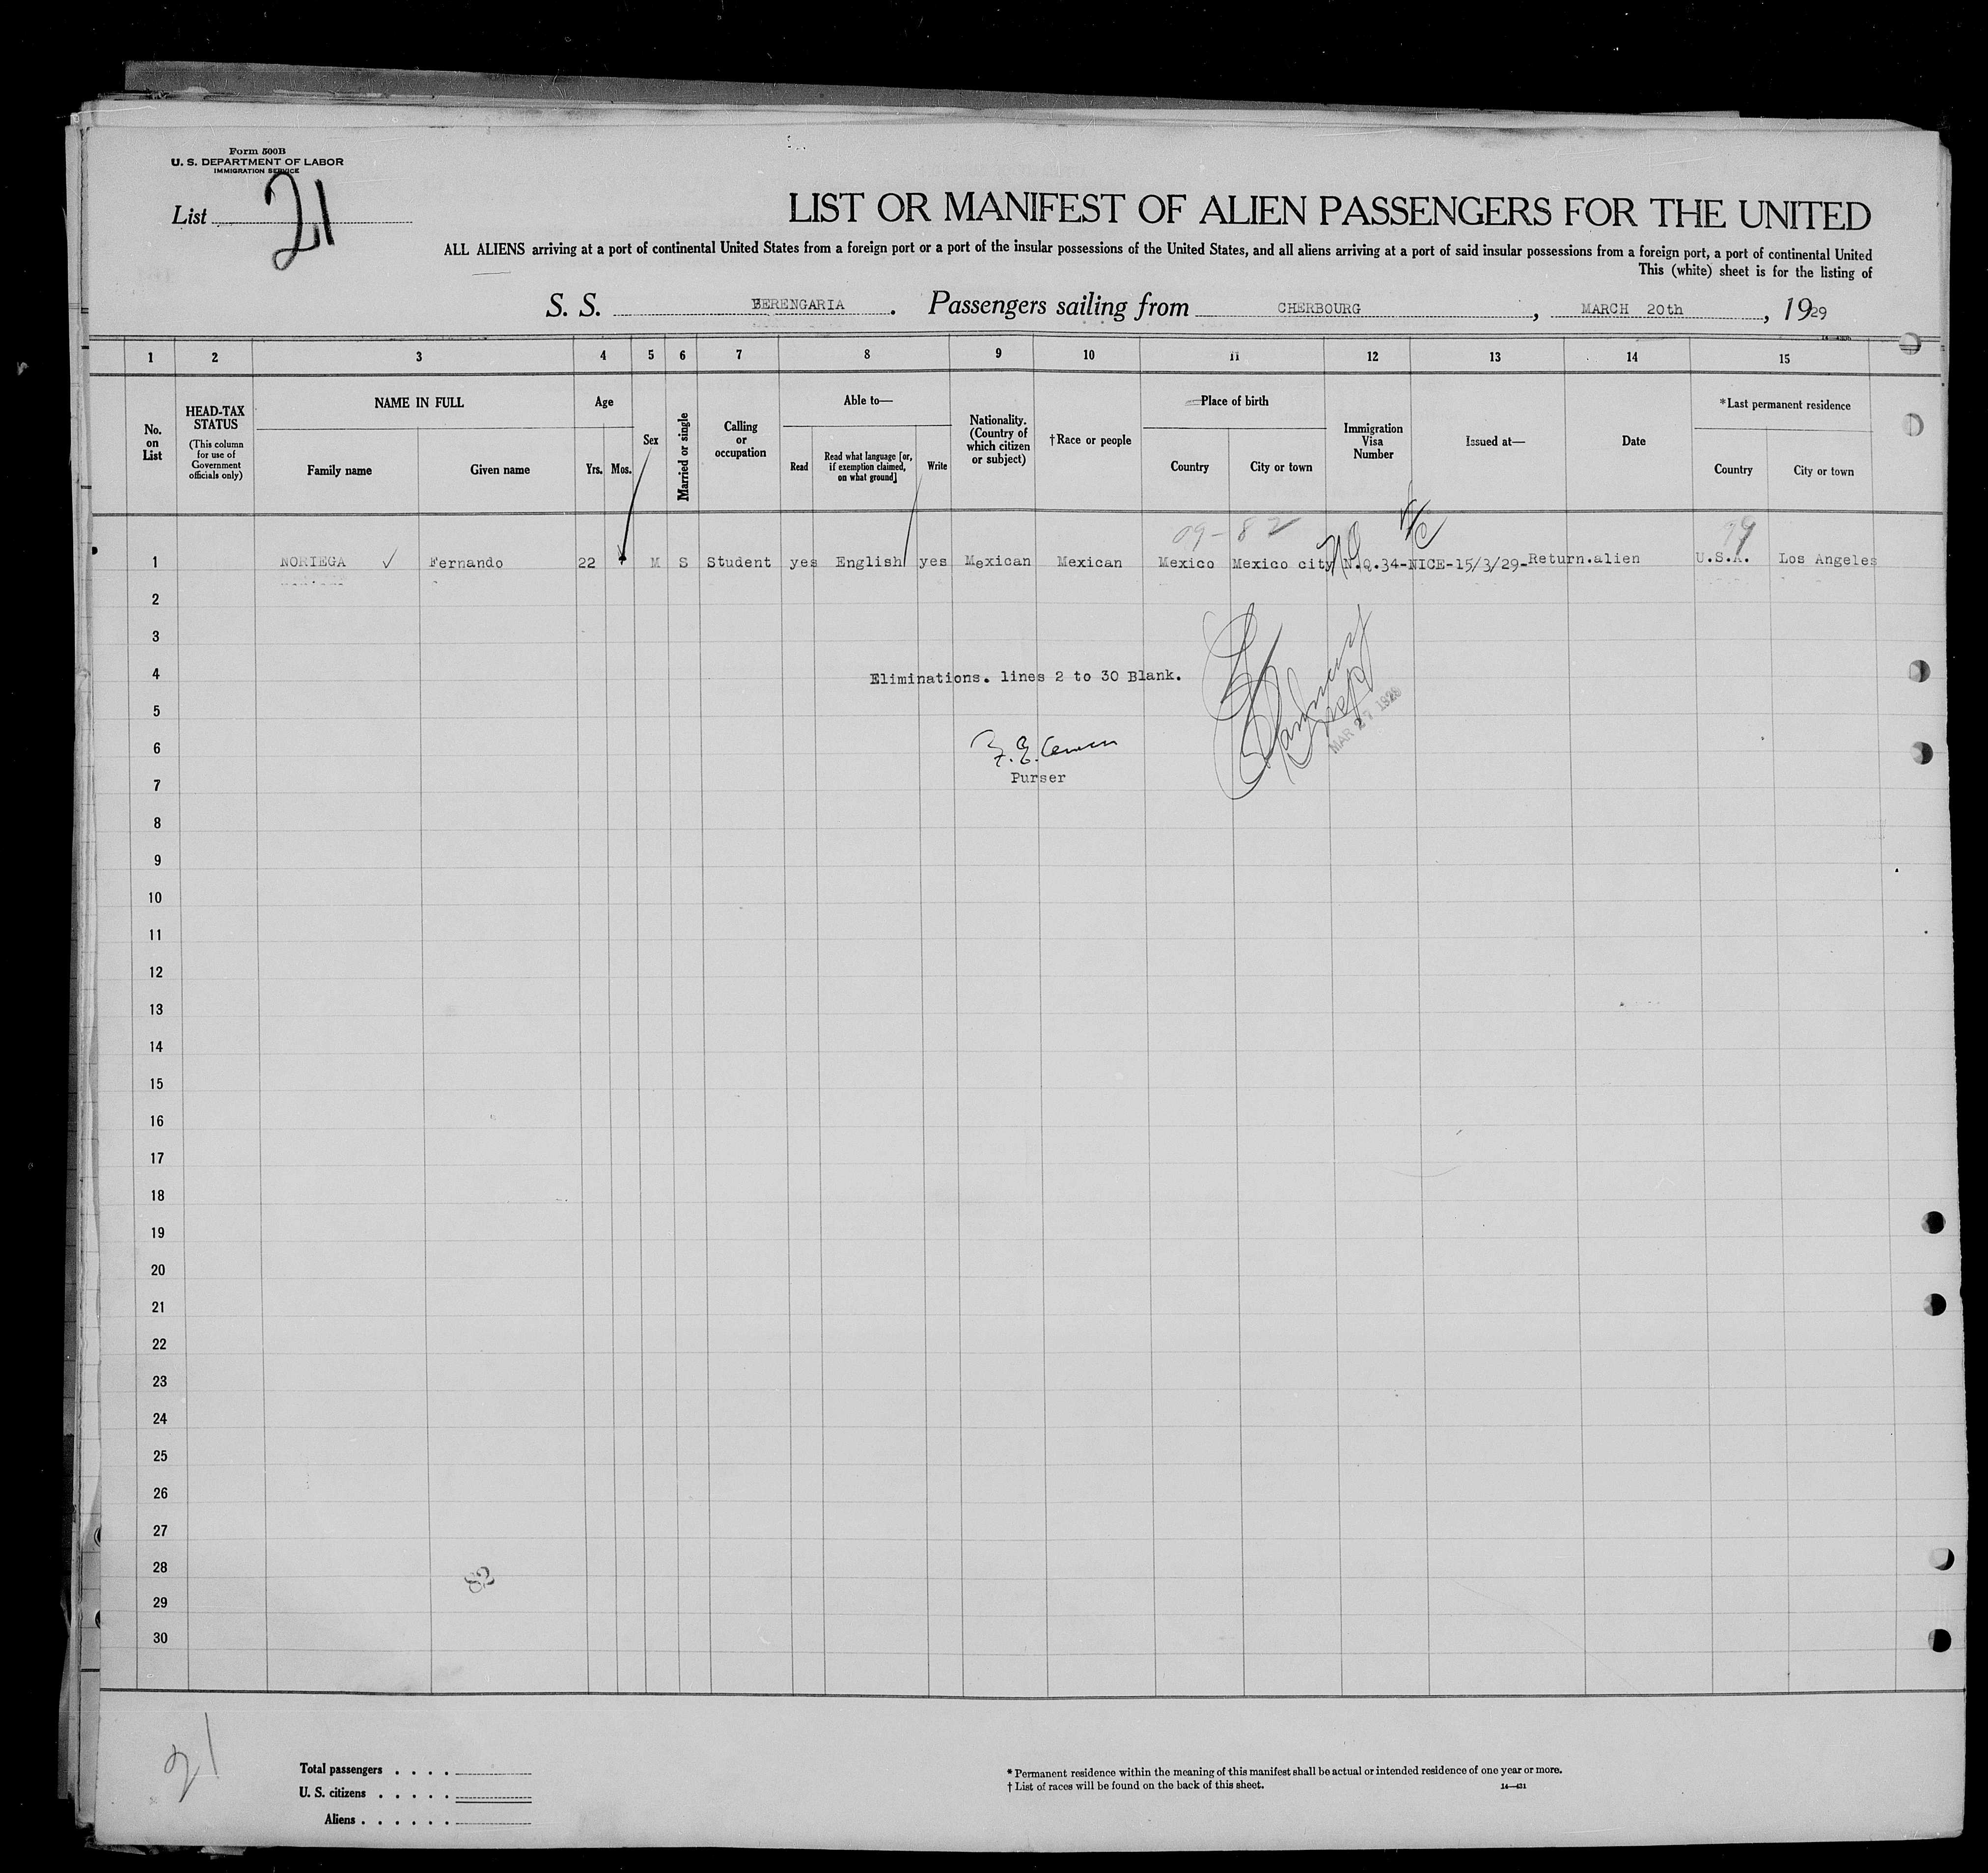 Form 500B
U. S. DEPARTMENT OF LABOR
IMMIGRATION SERVICE
List 21
LIST OR MANIFEST OF ALIEN PASSENGERS FOR THE UNITED
ALL ALIENS arriving at a port of continental United States from a foreign port or a port of the insular possessions of the United States, and all aliens arriving at a port of said insular possessions from a foreign port, a port of continental United
This (white) sheet is for the listing of
S. S. BERENGARIA . Passengers sailing from CHERBOURG , MARCH 20th , 1929
1 2 3 4 5 6 7 8 9 10 11 12 13 14 15
No. on List
HEAD-TAX STATUS
(This column for use of Government officials only)
NAME IN FULL
Family name
Given name
Age
Yrs.
Mos.
Sex
Married or single
Calling or occupation
Able to—
Read
Read what language [or, if exemption claimed, on what ground]
Write
Nationality. (Country of which citizen or subject)
†Race or people
Place of birth
Country
City or town
Immigration Visa Number
Issued at—
Date
*Last permanent residence
Country
City or town
09-82
1 NORIEGA ✓ Fernando 22 M S Student yes English yes Mexican Mexican Mexico Mexico city N.Q.34-NICE-15/3/29-Return.alien U.S.A. Los Angeles
2
3
4 Eliminations. lines 2 to 30 Blank.
5
MAR 27 1929
6
7 Purser
8
9
10
11
12
13
14
15
16
17
18
19
20
21
22
23
24
25
26
27
28
82
29
30
21
Total passengers . . . .
U. S. citizens . . . . .
Aliens . . . . . .
* Permanent residence within the meaning of this manifest shall be actual or intended residence of one year or more.
† List of races will be found on the back of this sheet.
14—431